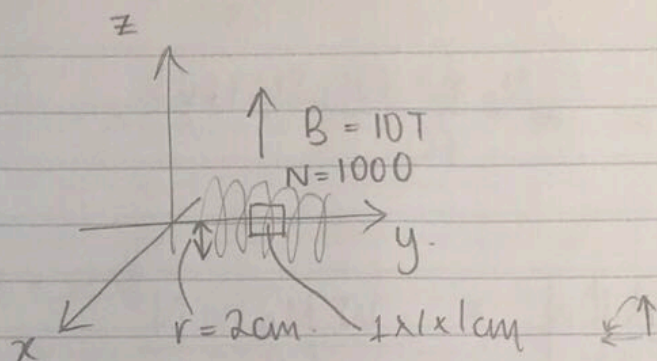 z
B = 10T
N=1000
y.
x
r = 2cm.
1x1x1cm